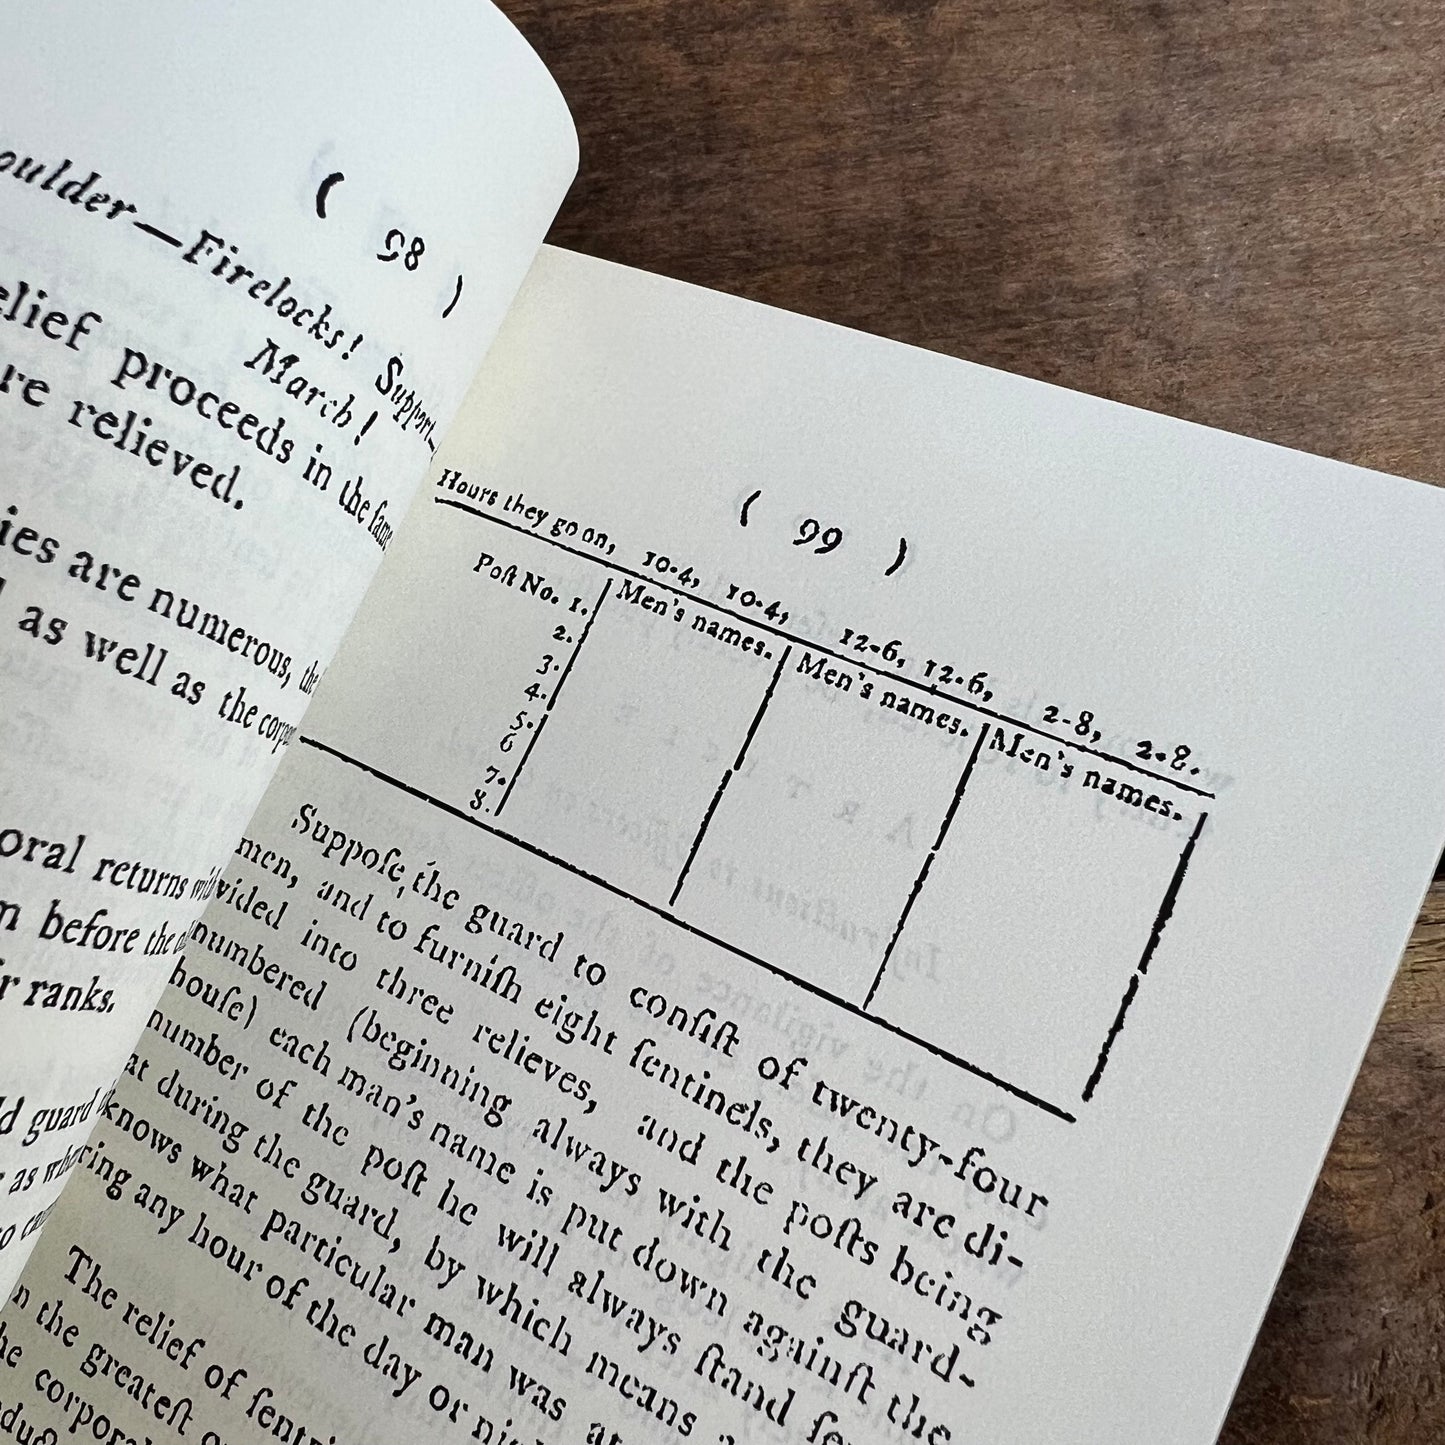 ( 98 )
oulder—Firelocks! Support—
March!
elief proceeds in the ſame
re relieved.
ies are numerous, the
as well as the
oral returns
m before the
r ranks.
ld guard
as
( 99 )
Hours they go on, 10.4, 10.4, 12.6, 12.6, 2-8, 2.8.
Poſt No. 1. Men's names. Men's names. Men's names.
2.
3.
4.
5.
6
7.
8.
Suppoſe, the guard to conſiſt of twenty-four
men, and to furniſh eight ſentinels, they are di-
vided into three relieves, and the poſts being
numbered (beginning always with the guard-
houſe) each man's name is put down againſt the
number of the poſt he will always ſtand
at during the guard, by which means
knows what particular man was at
ring any hour of the day or
The relief of
n the greateſt
he